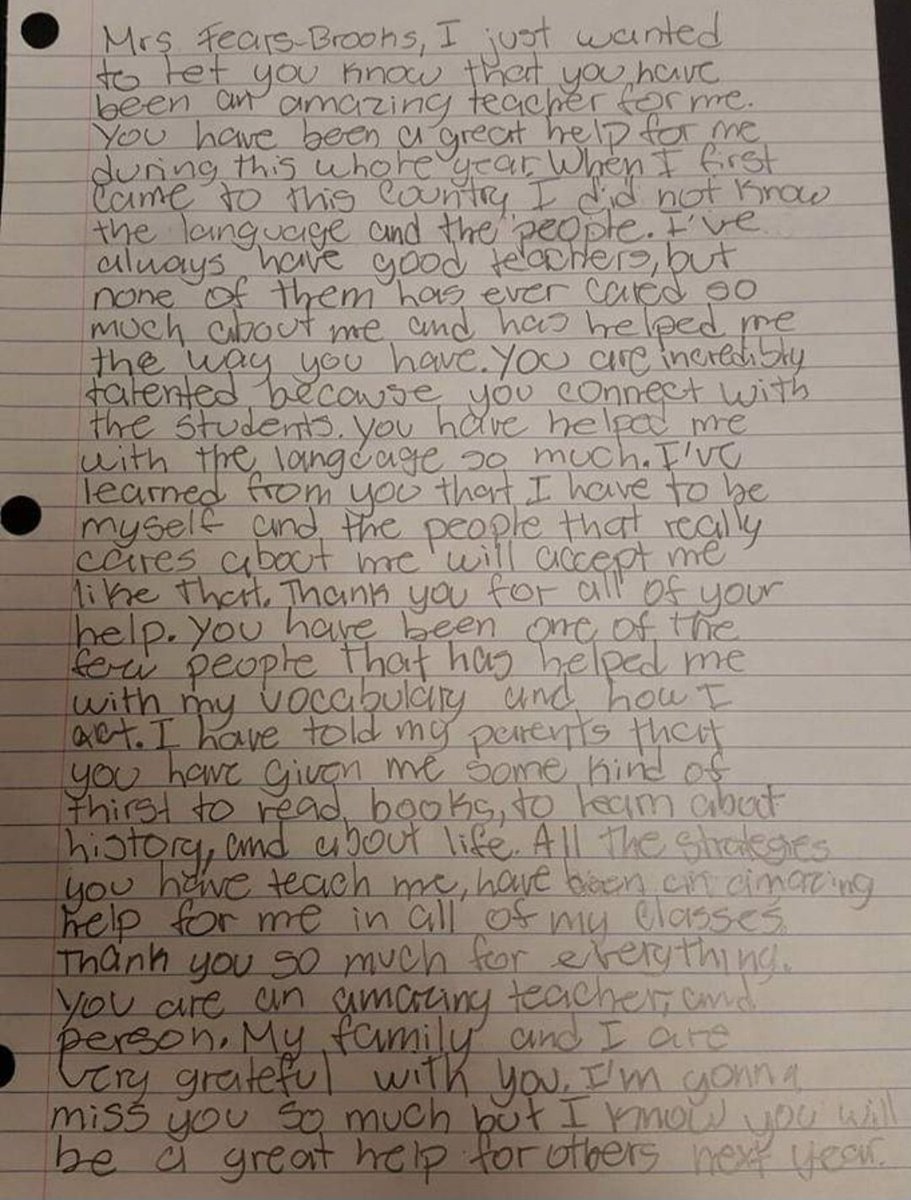 Mrs Fears-Brooks, I just wanted
to let you know that you have
been an amazing teacher for me.
You have been a great help for me
during this whole year. When I first
came to this country I did not know
the language and the people. I've
always have good teachers, but
none of them has ever cared so
much about me and has helped me
the way you have. You are incredibly
talented because you connect with
the students. You have helped me
with the language so much. I've
learned from you that I have to be
myself and the people that really
cares about me will accept me
like that. Thank you for all of your
help. You have been one of the
few people that has helped me
with my vocabulary and how I
act. I have told my parents that
you have given me some kind of
thirst to read books, to learn about
history, and about life. All the strategies
you have teach me, have been an amazing
help for me in all of my classes.
Thank you so much for everything.
You are an amazing teacher, and
person. My family and I are
very grateful with you. I'm gonna
miss you so much but I know you will
be a great help for others next year.